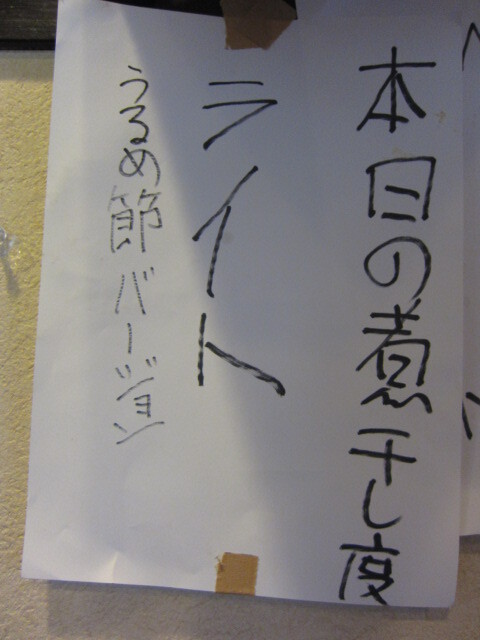 本日の煮干し度
ライト
うるめ節バージョン